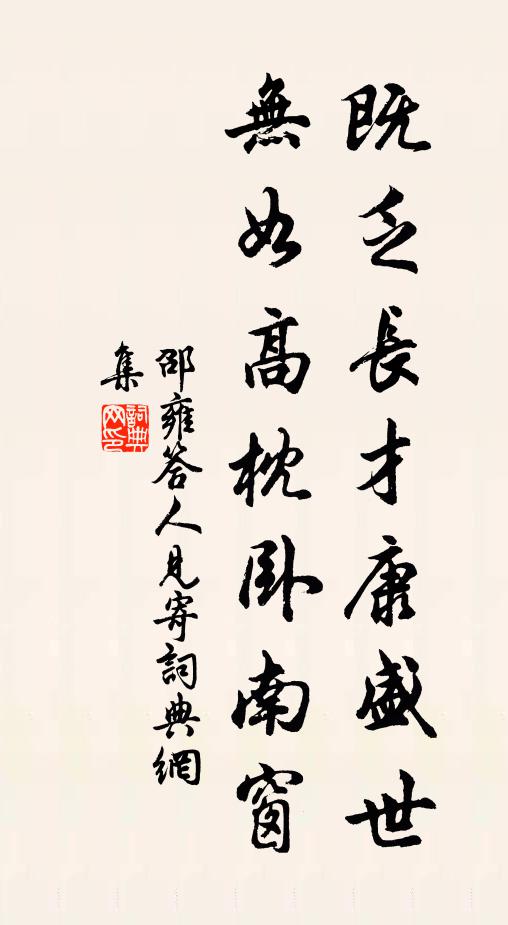 既乏長才康盛世
無如高枕臥南窗
邵雍答人見寄詞典網
集
詞典
网印